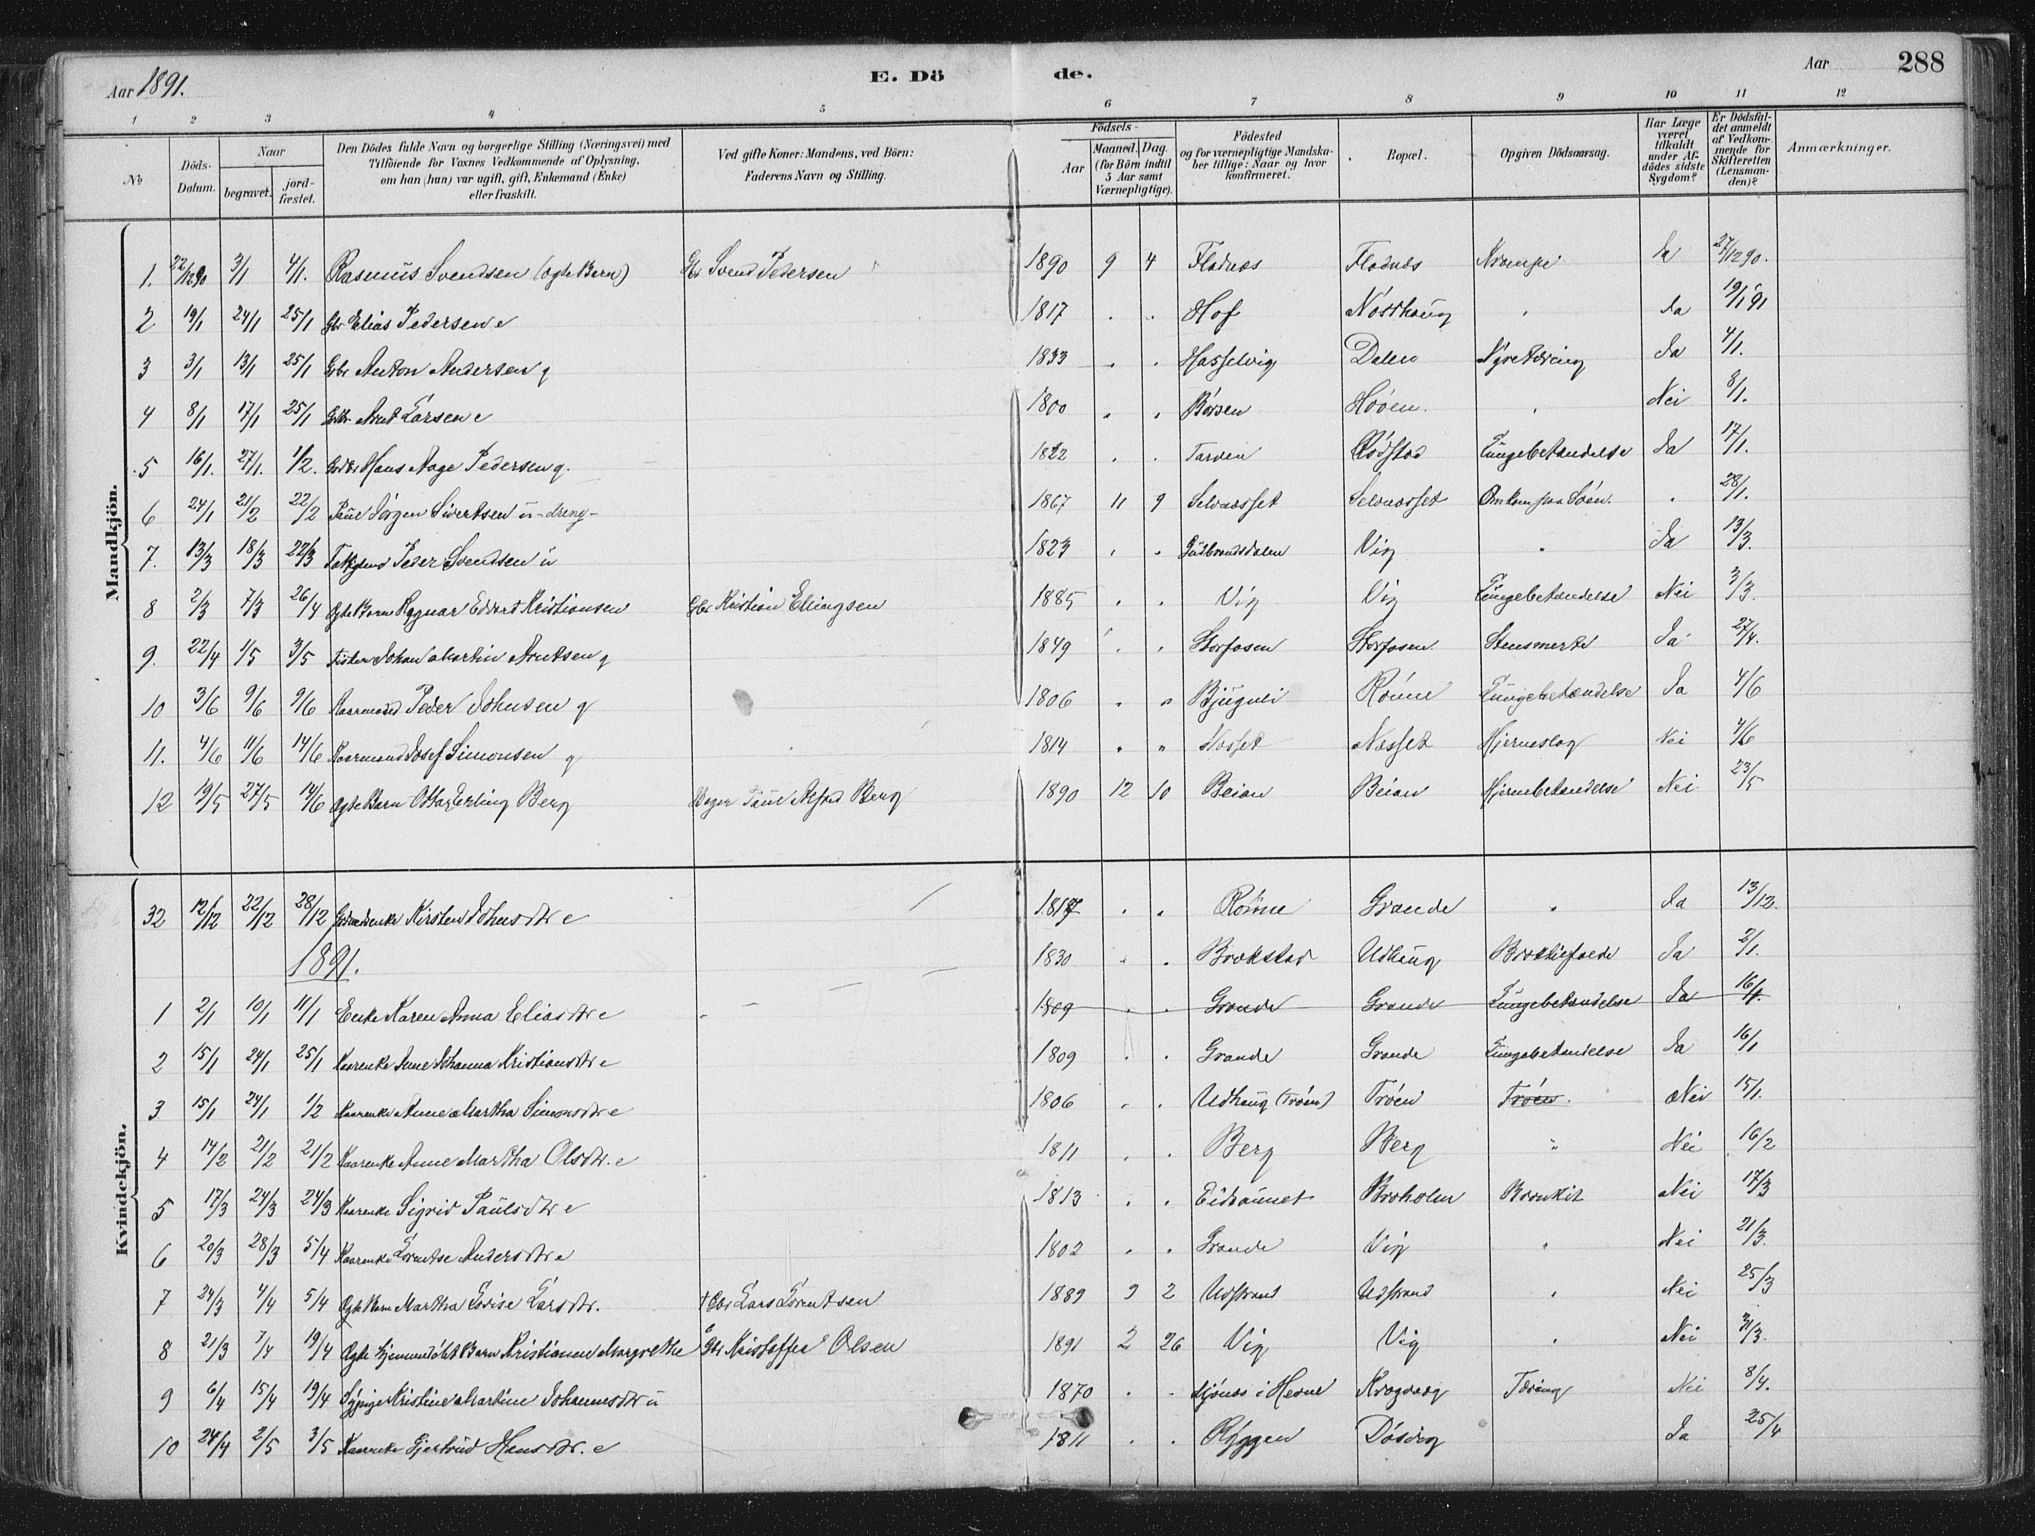 Aar 1891. E. Dö de. Aar 288
1 2 3 4 5 6 7 8 9 10 11 12
No
Döds-Datum.
Naar
begravet. jord-fæstet.
Den Dödes fulde Navn og borgerlige Stilling (Næringsvei) med
Tilföiende for Voxnes Vedkommende af Oplysning,
om han (hun) var ugift, gift, Enkemand (Enke)
eller fraskilt.
Ved gifte Koner: Mandens, ved Börn:
Faderens Navn og Stilling.
Födsels-
Aar Maaned. Dag.
(for Börn indtil
5 Aar samt
Værnepligtige).
Födested
og for værnepligtige Mandska-
ber tillige: Naar og hvor
konfirmeret.
Bopæl.
Opgiven Dödsaarsag.
Har Læge
været
tilkaldt
under Af-
dödes sidste
Sygdom?
Er Dödsfal-
det anmeldt
af Vedkom-
mende for
Skifteretten
(Lensman-
den)?
Anmærkninger.
Mandkjön.
1. 22/12 90 3/1 4/1. Rasmus Svendsen (ægte Barn) Gbr Svend Pedersen 1890 9 4 Fladnæs Fladnæs Krampe Ja 27/12 90.
2 19/1 24/1 25/1 Gbr Elias Pedersen e 1817 . . Hof Nösthaug . Ja 19/1 91
3 3/1 13/1 25/1 Gbr Anton Andersen g 1833 . . Hasselvig Dalen Nyretæring Ja 4/1.
4 8/1 17/1 25/1 Arnt Larsen e 1800 . . Börsen Höøen. . Nei 8/1.
5 16/1. 27/1. 1/2. Hans Aage Pedersen g. 1822 . . Tarven Rödstad Lungebetændelse Ja 17/1.
6 24/1 21/2 22/2 Jörgen Sivertsen u - dreng - 1867 11 9 Selvnæsset Selvnæsset Omkom paa Söen. . 28/1.
7. 13/3 18/3 22/3 Peder Svendsen u 1823 . . Gudbrandsdalen Vig " Ja 13/3.
8 2/3 7/3 26/4 Ægte Barn Ragnar Edvard Kristiansen Gbr Kristian Ellingsen 1885 . . Vig Vig Lungebetændelse Nei 3/3.
9. 22/4 1/5 3/5 Fisker Johan Martin Arntsen g 1849 . . Storfosen Storfosen Stensmerte Ja 27/4.
10 3/6 9/6 9/6 Kaarmand Peder Johnsen g 1806 . . Bjugnei Rönne Lungebetændelse Ja 4/6
11. 4/6 11/6 14/6 Kaarmand Josef Simonsen g 1814 . " Næsset Næsset Hjerneslag Nei 4/6
12 19/5 27/5 14/6 Ægte Barn Ottar Erling Berg Paul Alfred Berg 1890 12 10 Beian Beian Hjernebetændelse Nei 23/5
Kvindekjön.
32 12/12 22/12 28/12 Kirsten Johnsdtr e 1817 . . Rönne Grande " Ja 13/12.
1891.
1830 . . Brækstad Udhaug Ja 2/1.
1 2/1 10/1 11/1 Enke Karen Anna Eliasdtr e 1809 . . Grande Grande Lungebetændelse Ja 16/1.
2 15/1 24/1 25/1 Kaarenke Ane Johanna Kristiansdtr e 1809 . . Grande Grande Lungebetændelse Ja 16/1
3 15/1 24/1 1/2 Kaarenke Anne Martha Simonsdtr e 1806 . . Udhaug (Tröen) Tröen Tröen. Nei 15/1.
4 14/2 21/2 21/2 Kaarenke Anne Martha Olsdtr. e 1811 . . Berg Berg " Nei 16/2
5 17/3 24/3 24/3 Kaarenke Sigrid Paulsdtr e 1813 . . Eidsaunet Broholm Bronkit Nei 17/3
6 20/3 28/3 5/4 Kaarenke Lorentse Andersdtr e 1802 . . Grande Vig " Nei 21/3.
7 24/3 4/4 5/4 Ægte Barn Martha Lovise Larsdtr. + Gbr Lars Lorentsen 1889 9 2 Udstrand Udstrand . Nei 25/3
8 21/3 7/4 19/4 Ægte hjemmedöbt Barn Kristianna Margrethe Kristoffer Olsen 1891 2 26 Vig Vig . Nei 31/3.
9 6/4 15/4 19/4 Sypige Kristine Martine Johannesdtr u 1870 . . i Hevne Kragvaag Tæring Nei 8/4.
10 24/4 2/5 3/5 Kaarenke Gjertrud Hansdtr. e 1811 . . Ryggen Dösvig Ja 25/4